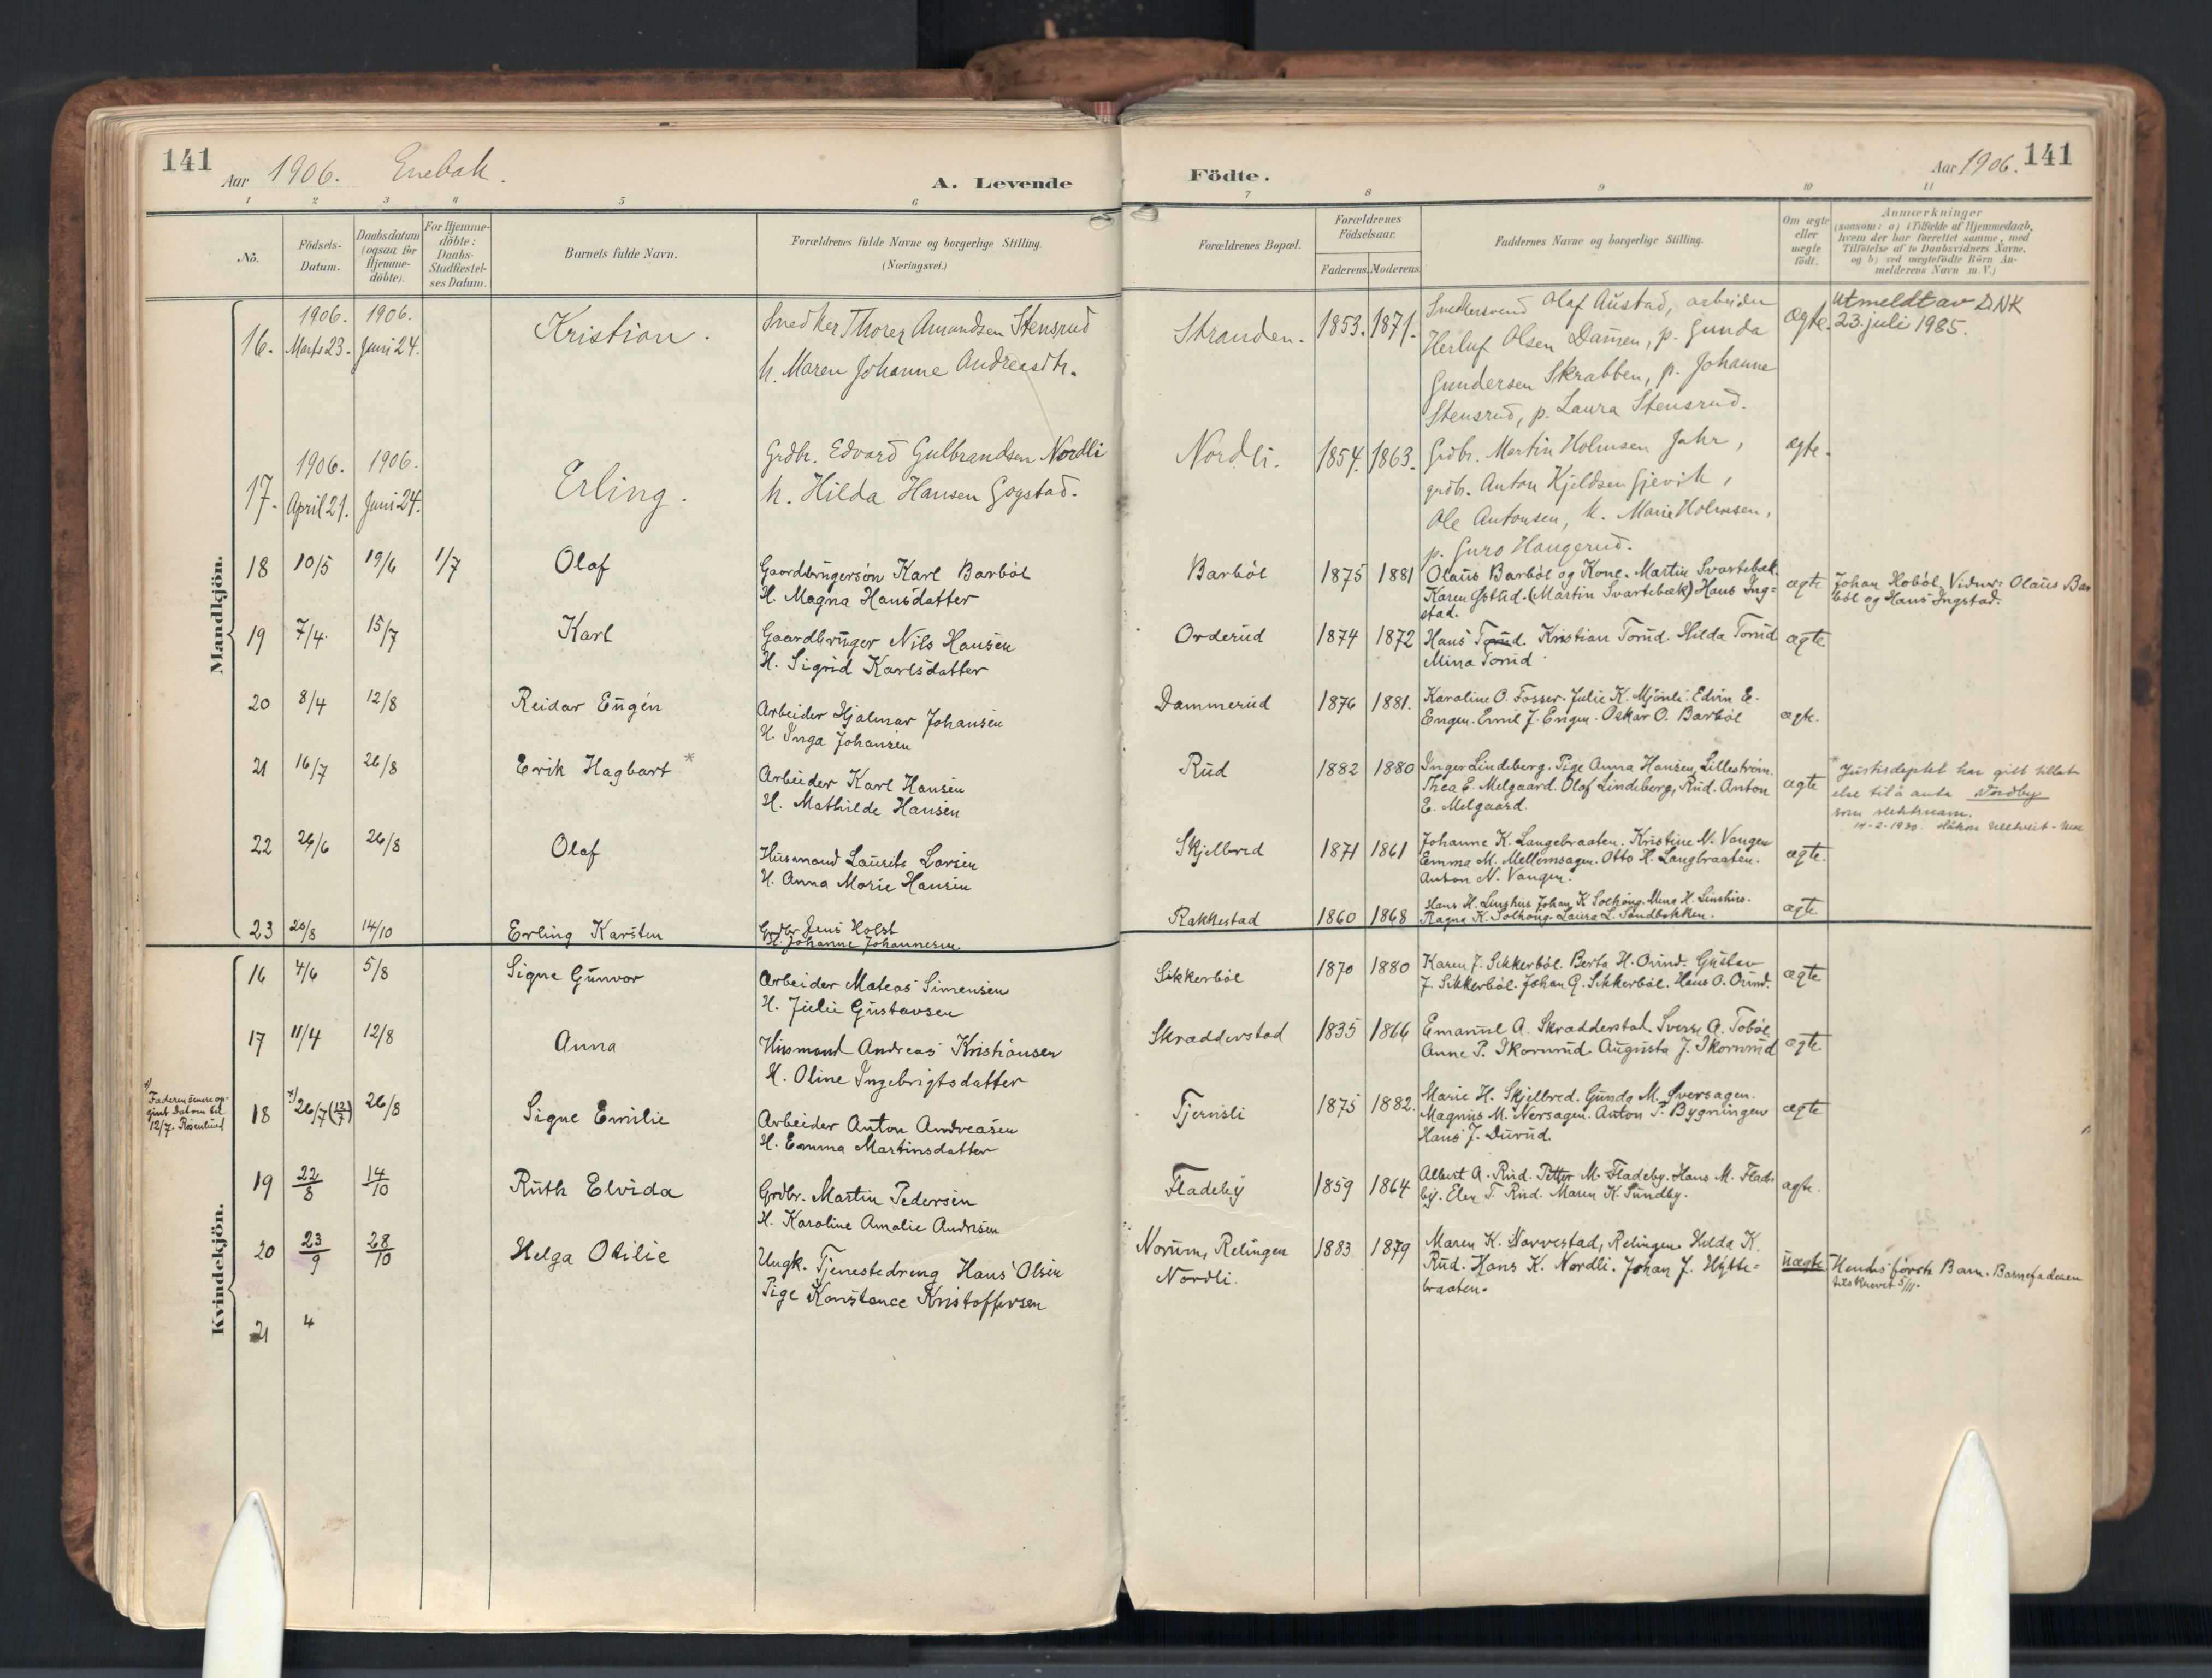 141 Aar 1906. Enebak.
A. Levende Födte.
Aar 1906. 141
1 2 3 4 5 6 7 8 9 10 11
No.
Födsels-Datum.
Daabsdatum (ogsaa for Hjemme-döbte).
For Hjemme-döbte: Daabs-Stadfæstel-ses Datum.
Barnets fulde Navn.
Forældrenes fulde Navne og borgerlige Stilling.
(Næringsvei.)
Forældrenes Bopæl.
Forældrenes Födselsaar.
Faderens. Moderens.
Faddernes Navne og borgerlige Stilling.
Om ægte eller uægte födt.
Anmærkninger
(saasom: a) i Tilfælde af Hjemmedaab,
hvem der har forrettet samme, med
Tilföielse af to Daabsvidners Navne,
og b) ved uægtefödte Börn An-
melderens Navn m. V.)
Mandkjön.
16. 1906. Marts 23. 1906. Juni 24. Kristian.
Snedker Thorer Amundsen Stensrud
h. Maren Johanne Andreasdtr.
Stranden. 1853. 1871.
Snedkersvend Olaf Austad, arbeider
Herluf Olsen Damen, p. Gunda
Gundersen Skrabben, p. Johanne
Stensrud, p. Laura Stensrud.
ægte.
Utmeldt av DNK
23. juli 1985.
17. 1906. April 21. 1906. Juni 24. Erling.
Grdbr. Edvard Gulbrandsen Nordli
h. Hilda Hansen Gogstad.
Nordli. 1854. 1863.
Grdbr. Martin Holmsen Jahr,
grdbr. Anton Kjeldsen Gjevik,
Ole Antonsen, k. Marie Holmsen,
p. Guro Haugerud.
ægte.
18 10/5 19/6 1/7 Olaf
Gaardbrugersön Karl Barböl
H. Magna Hansdatter
Barböl 1875 1881
Olaus Barböl og Kone. Martin Svartebæk.
Karen Östlid. (Martin Svartebæk) Hans Ing=
stad.
ægte
Johan Hoböl. Vidner: Olaus Bar
böl og Hans Ingstad.
19 7/4 15/7 Karl
Gaardbruger Nils Hansen
H. Sigrid Karlsdatter
Orderud 1874 1872
Hans Torud. Kristian Torud. Hilda Torud
Mina Torud
ægte
20 8/4 12/8 Reidar Eugén
Arbeider Hjalmar Johansen
H. Inga Johansen
Dammerud 1876 1881.
Karoline O. Fosser. Julie K. Mjönli. Edvin E.
Engen. Emil J. Engen. Oskar O. Barböl
ægte.
21 16/7 26/8 Erik Hagbart *
Arbeider Karl Hansen
H. Mathilde Hansen
Rud 1882 1880
Inger Lindeberg. Pige Anna Hansen, Lilleström.
Thea E. Melgaard. Olaf Lindeberg, Rud. Anton
E. Melgaard.
ægte
* Justisdeptet har gitt tillat-
else til å anta Nordby
som slektsnavn.
14-2-1930
22 24/6 26/8 Olaf
Husmand Laurits Larsen
H. Anna Marie Hansen
Skjelbred 1871 1861
Johanne K. Langebraaten. Kristine N. Vangen
Emma M. Mellemsagen. Otto H. Langbraaten.
Anton N. Vangen.
ægte.
23 20/8 14/10 Erling Karsten
Grdbr. Jens Holst
H. Johanne Johannesen.
Rakkestad 1860 1868
Hans H. Linshus Johan K Solhöug. Mina H. Linshus.
Ragna K. Solhöug. Laura L. Sandbakken.
ægte
Kvindekjön.
16 4/6 5/8 Signe Gunvor
Arbeider Mateas Simensen
H. Julie Gustavsen
Sikkerböl 1870 1880
Karen J. Sikkerböl. Berta H. Ourud. Gustav
J. Sikkerböl. Johan G. Sikkerböl. Hans O. Ourud.
ægte
17 11/4 12/8 Anna
Husmand Andreas Kristiansen
H. Oline Ingebrigtsdatter
Skradderstad 1835 1866
Emanuel A. Skradderstad. Sverre A. Toböl
Anne P. Ikornrud. Augusta J. Ikornrud
ægte
x) Faderen senere op-
givet Datoen til
12/7. Rosenlund
18 x) 26/7 (12/7) 26/8 Signe Emilie
Arbeider Anton Andreasen
H. Emma Martinsdatter
Tjernsli 1875 1882.
Marie H. Skjelbred. Gunda M. Oversagen.
Magnus M. Nersagen. Anton P. Bygningen
Hans J. Durud.
ægte
19 22/8 14/10 Ruth Elvida
Grdbr. Martin Pedersen
H. Karoline Amalie Andresen
Fladeby 1859 1864
Albert A. Rud. Petter M. Fladeby. Hans M. Flade
by. Elen T. Rud. Maren K. Sundby.
ægte.
20 23/9 28/10 Helga Otilie
Ungk. Tjenestedreng Hans Olsen
Pige Konstance Kristoffersen
Norum, Relingen
Nordli.
1883 1879
Maren K. Norvestad, Relingen. Hilda K.
Rud. Hans K. Nordli. Johan J. Hytte=
braaten.
uægte
Hendes förste Barn. Barnefaderen
tilskrevet 5/11.
21 4